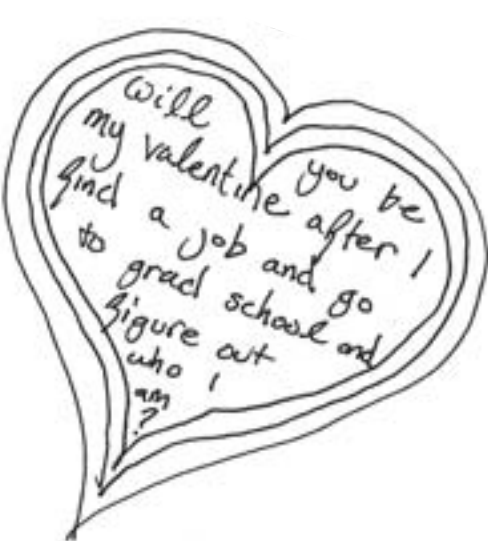 Will you be
my valentine after I
find a job and go
to grad school and
figure out
who I
am
?